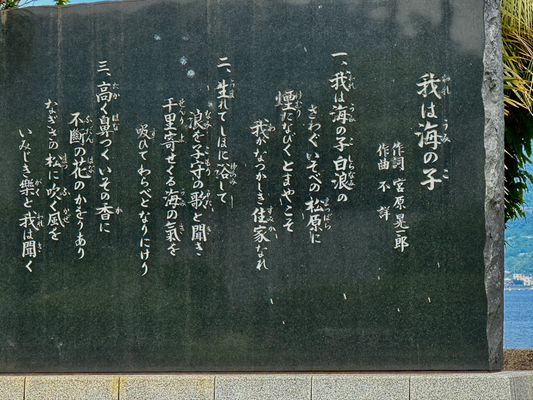 我は海の子
作詞 宮原晃一郎
作曲 不詳
一、我は海の子白浪の
さわぐいそべの松原に
煙たなびくとまやこそ
我がなつかしき住家なれ
二、生れてしほに浴して
浪を子守の歌と聞き
千里寄せくる海の氣を
吸ひてわらべとなりにけり
三、高く鼻つくいその香に
不斷の花のかをりあり
なぎさの松に吹く風を
いみじき樂と我は聞く